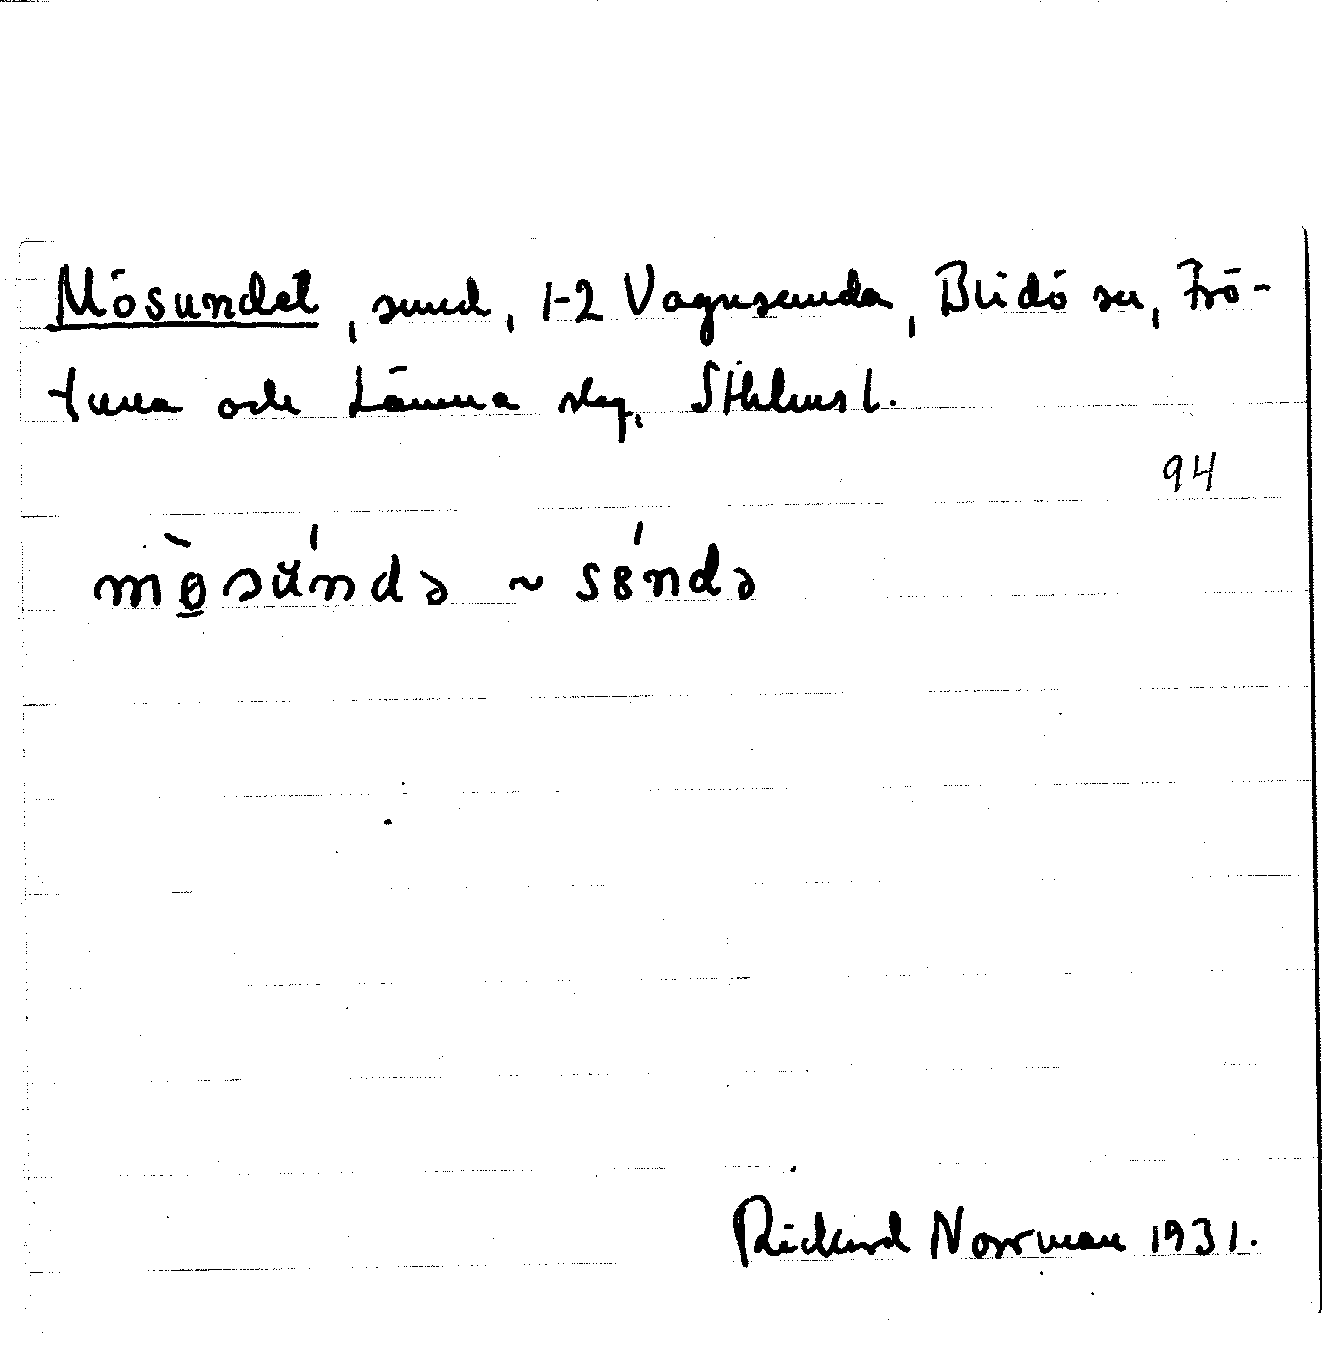 Mösundet, sund, 1-2 Vagnsunda, Blidö sn, Frö-
tuna och Länna slg, Sthlms l.
94
mö̀sŭ́ndə ~ sȣ́ndə
Rickard Norrman 1931.